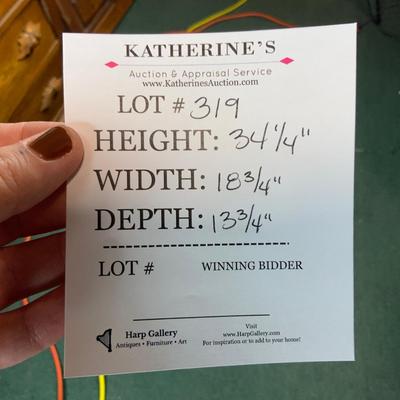 KATHERINE'S
Auction & Appraisal Service
www.KatherinesAuction.com
LOT # 319
HEIGHT: 34 1/4"
WIDTH: 18 3/4"
DEPTH: 13 3/4"
LOT # WINNING BIDDER
Harp Gallery
Antiques • Furniture • Art
Visit
www.HarpGallery.com
For inspiration or to add to your home!